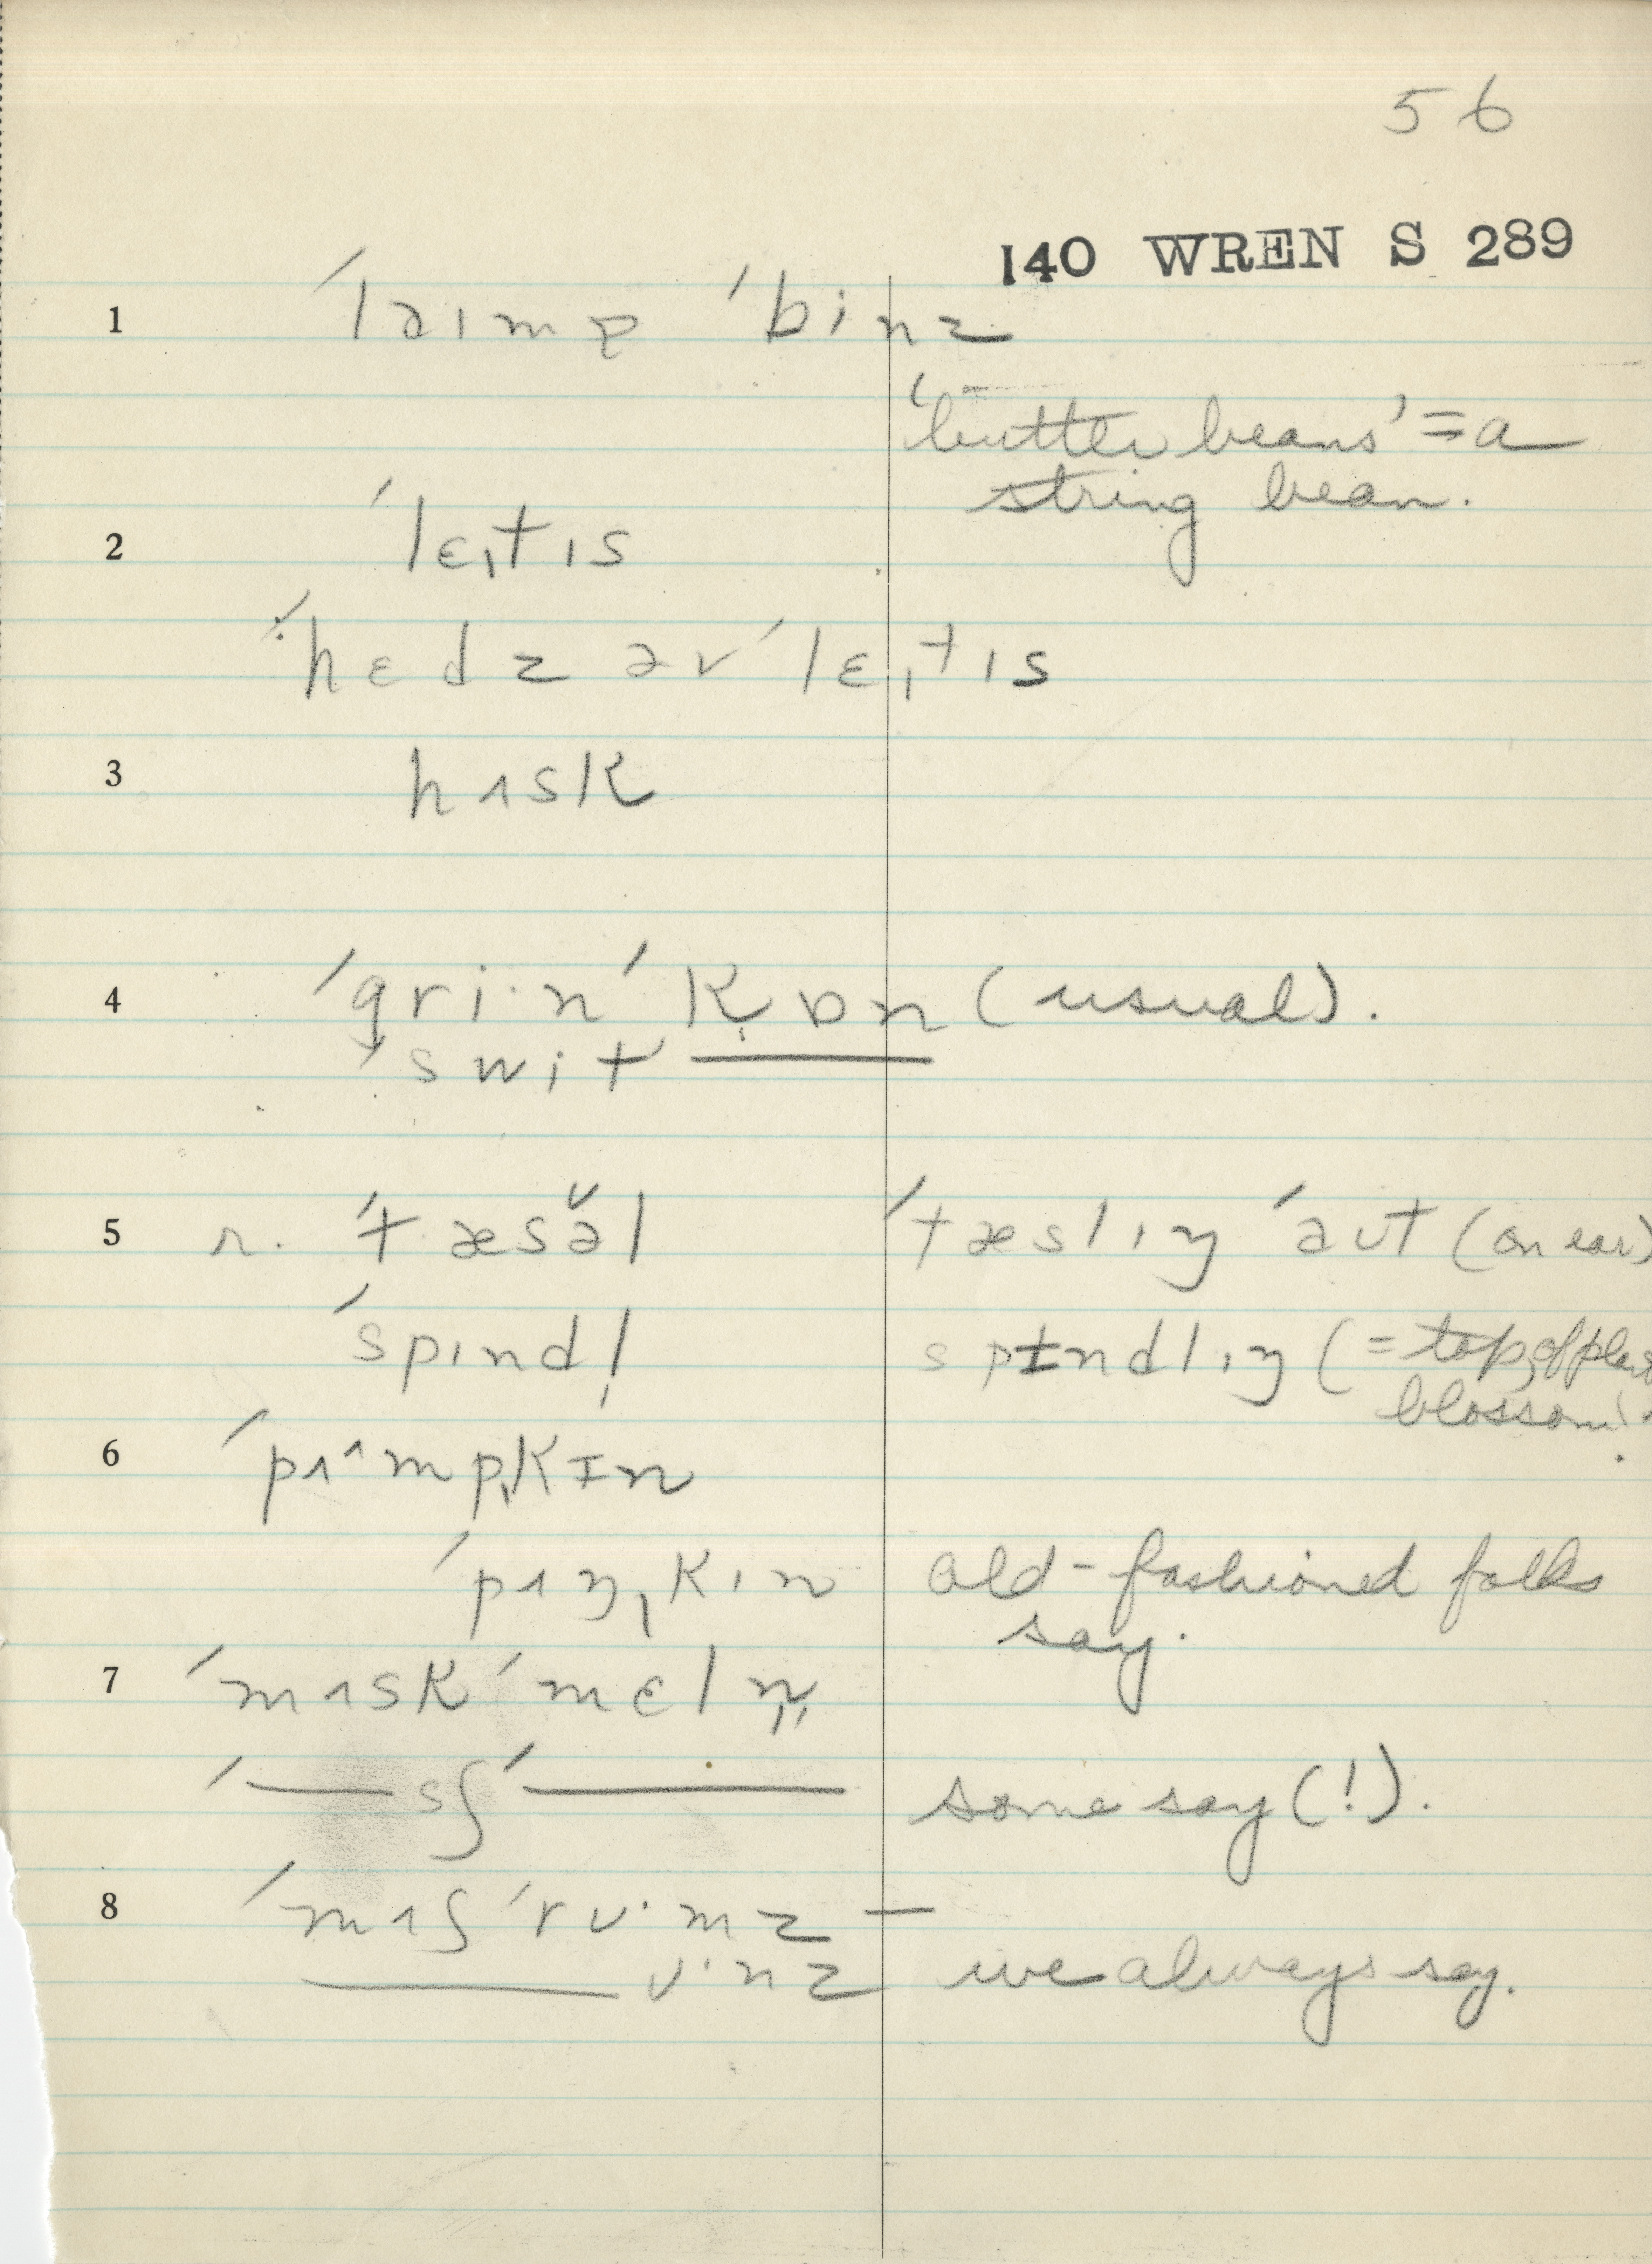 56
140 WREN S 289
1 ˈlaɪmə ˈbinz
'butter beans' = a
string bean.
2 ˈlɛˌtɪs
ˈhɛdz əv ˈlɛˌtɪs
3 hʌsk
4 ˈgri·n ˈkɒn (usual).
ˈswit ———
5 r. ˈtæsə̆l ˈtæslɪŋ ˈaʊt (on ear)
ˈspɪndl̩ spɪndlɪŋ (= top of plant
blossom).
6 ˈpʌ^mpˌkɪn
ˈpʌŋˌkɪn old-fashioned folks
say.
7 ˈmʌskˈmɛln̩
ˈ——sʃˈ—— some say (!).
8 ˈmʌʃˈrʊ·mz —
—— ʊ·nz we always say.